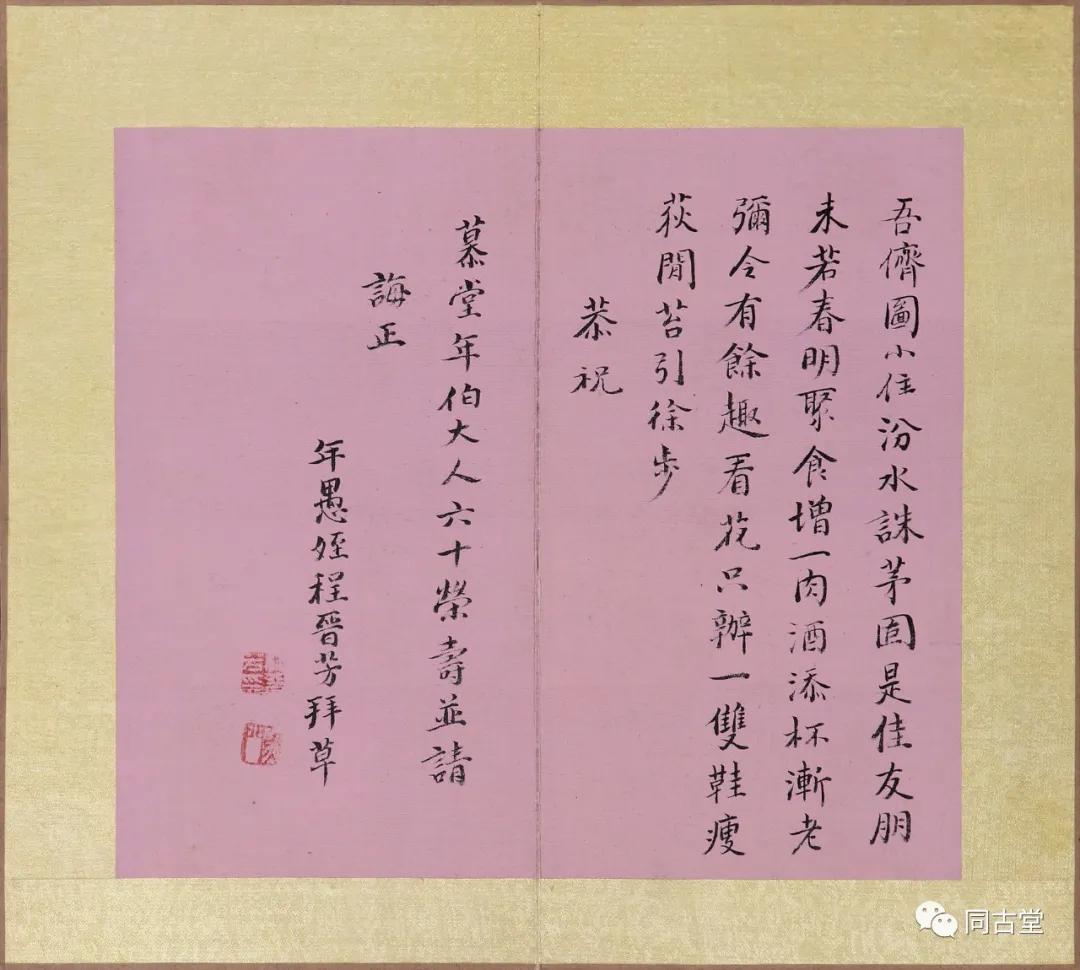 吾儕圖小住汾水誅茅固是佳友朋
未若春明聚食增一肉酒添杯漸老
彌令有餘趣看花只辦一雙鞋瘦
荻閒苔引徐步
恭祝
慕堂年伯大人六十榮壽並請
誨正
年愚姪程晉芳拜草
同古堂